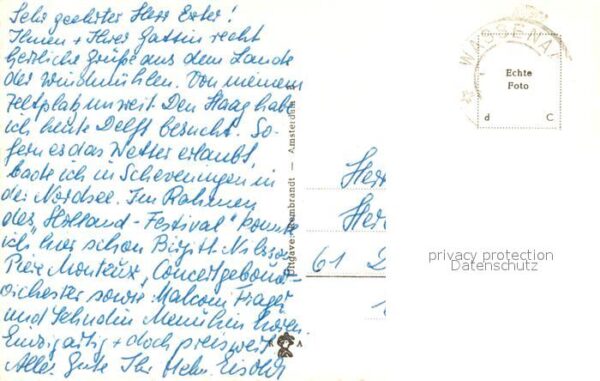 Sehr geehrter Herr Exter!
Ihnen + Ihrer Gattin recht
herzliche Grüße aus dem Lande
der Windmühlen. Von meinem
Zeltplatz unweit Den Haag habe
ich heute Delft besucht. So-
fern es das Wetter erlaubt,
bade ich in Scheveningen in
der Nordsee. Im Rahmen
des "Holland-Festival" konnte
ich hier schon Birgitt Nilsson,
Piere Monteux, Concertgebouw-
orchester sowie Malcom Frager
und Jehudin Menuhin hören.
Einzigartig + doch preiswert.
Alles Gute Ihr Helm.
Uitgave: Rembrandt — Amsterdam
WAS
Echte
Foto
d C
Herr
Herr
61 D
privacy protection
Datenschutz